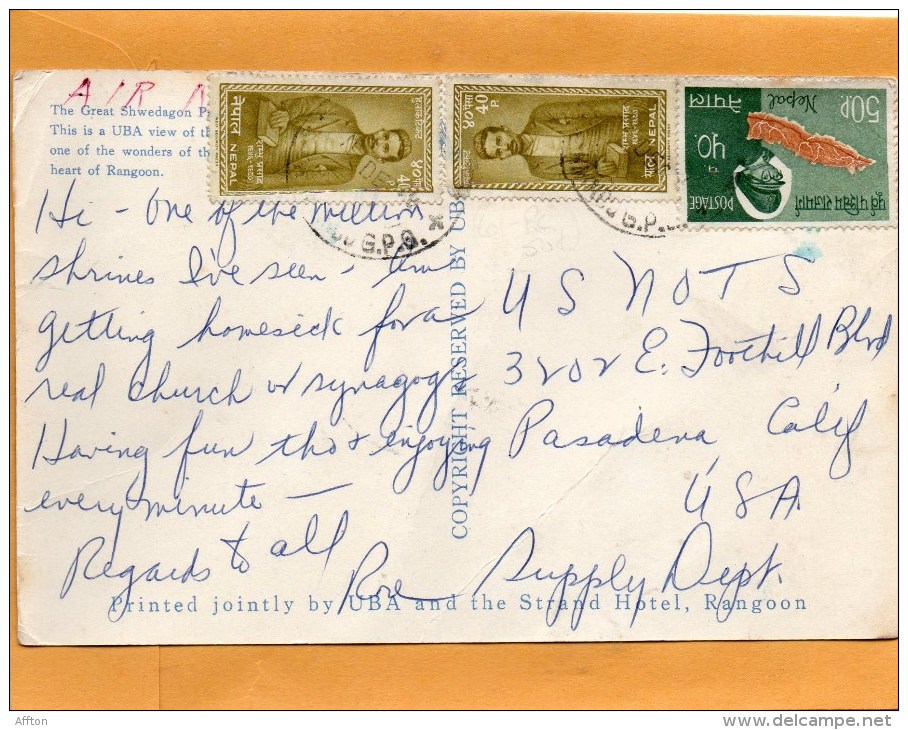 AIR
The Great Shwedagon
This is a UBA view of
one of the wonders of
heart of Rangoon.
नेपाल
NEPAL
४०
40
P.
४० पैसा
40
P.
नेपाल
NEPAL
50P.
५०
नेपाल
Nepal
POSTAGE
पूर्व पश्चिम राजमार्ग
G.P.O.
G.P.O.
Hi - One of the million
shrines I've seen - am
getting homesick for a
real church or synagogue
Having fun tho & enjoying
every minute —
Regards to all
Roe
COPYRIGHT RESERVED BY UBA
U S N O T S
3202 E. Foothill Blvd
Pasadena Calif
USA
Supply Dept.
Printed jointly by UBA and the Strand Hotel, Rangoon
Affton
http://www.delcampe.net